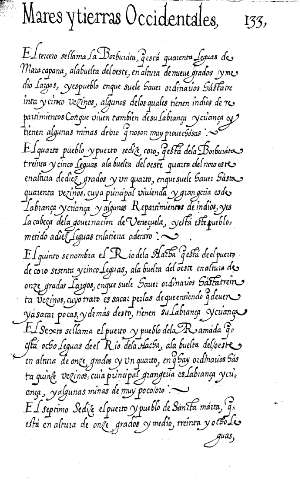 Mares y tierras Occidentales, 133,
El tercero se llama La Borburata, q̃ está quarenta leguas de
Maracapana, ala buelta del oeste, en altura de nueve grados y me
dio largos, y es pueblo en que suele haver ordinarios hasta cre
inta y cinco vezinos, algunos de los quales tienen indios de re
partimientos Con que viven tambien de su labrança y criança y
tienen algunas minas de oro que no son muy provechosas
El quarto pueblo y puerto se dize coro, questá de la Borburata
treinta y cinco leguas ala buelta del oeste quarta del noroeste
en altura de diez grados y un quarto, en que suele haver hasta
quarenta vezinos, cuya principal vivienda y grangeria es de
labrança y criança y algunos Repartimientos de indios, y es
la cabeça de la governacion de Venezuela, y está este pueblo
metido dos leguas en la tierra adentro
El quinto se nombra el Rio de la Hacha q̃ está del puerto
de coro sesenta y cinco leguas, ala buelta del oeste en altura de
onze grados largos, en que suele haver ordinarios hasta trein
ta vezinos, cuyo trato es sacar perlas de que entiendo q̃ deven
ya sacar pocas, y de más desto, tienen su labrança y criança
El Sexto se llama el puerto y pueblo de la Ramada q̃
está ocho leguas de el Rio de la Hacha, ala buelta del oeste
en altura de onze grados y un quarto, en q̃ hay ordinarios has
ta quinze vezinos, cuia principal grangeria es labrança y cri
ança, y algunas minas de muy poco oro
El septimo se dize el puerto y pueblo de Santa marta, q̃
está en altura de onze grados y medio, treinta y ocho le
guas,